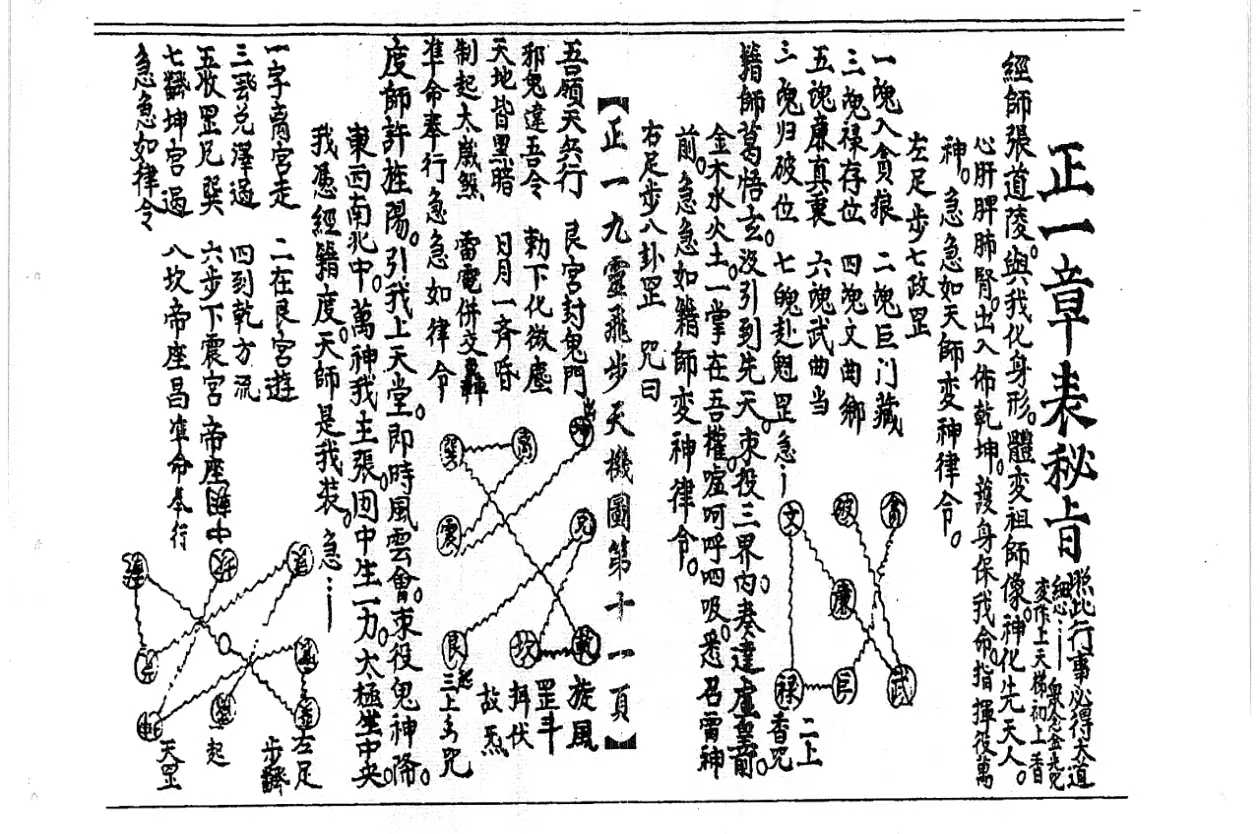 正一章表秘旨
照此行事必得大道
細心
变作上天梯初上香
眾念金光咒
經師張道陵。與我化身形。體变祖師像。神化先天人。
心肝脾肺腎。出入佈乾坤。護身保我命。指揮役萬
神。急急如天師变神律令。
左足步七政罡
一魄入貪狼 二魄巨门藏
三魄禄存位 四魄文曲鄉
五魄廉真裏 六魄武曲当
三魄归破位 七魄赴魁罡 急
籍師葛悟玄。没引到先天。束役三界内。奏達虛皇前。
金木水火土。一掌在吾權。噓呵呼四吸。悉召雷神
前。急急如籍師变神律令。
右足步八卦罡 咒曰
貪
破
文
廉
武
巨
禄
二上
香咒
【正一九靈飛步天機圖第十一頁】
吾領天兵行 艮宮封鬼門
邪鬼違吾令 勅下化微塵
天地皆黑暗 日月一齐昏
制起太歲煞 雷電併交轟
準命奉行急急如律令
坤
離
巽
兌
震
乾
坎
艮
旋風
罡斗
揖伏
故炁
三上香咒
度師許旌陽。引我上天堂。即時風雲會。束役鬼神降。
東西南北中。萬神我主張。囬中生一力。太極坐中央。
我憑經籍度。天師是我裝。急
一字离宮走 二在艮宮遊
三飛兌澤過 四到乾方流
五收罡兄巽 六步下震宮帝座中
七坤宮過 八坎帝座昌準命奉行
急急如律令
左足
步
起
天罡